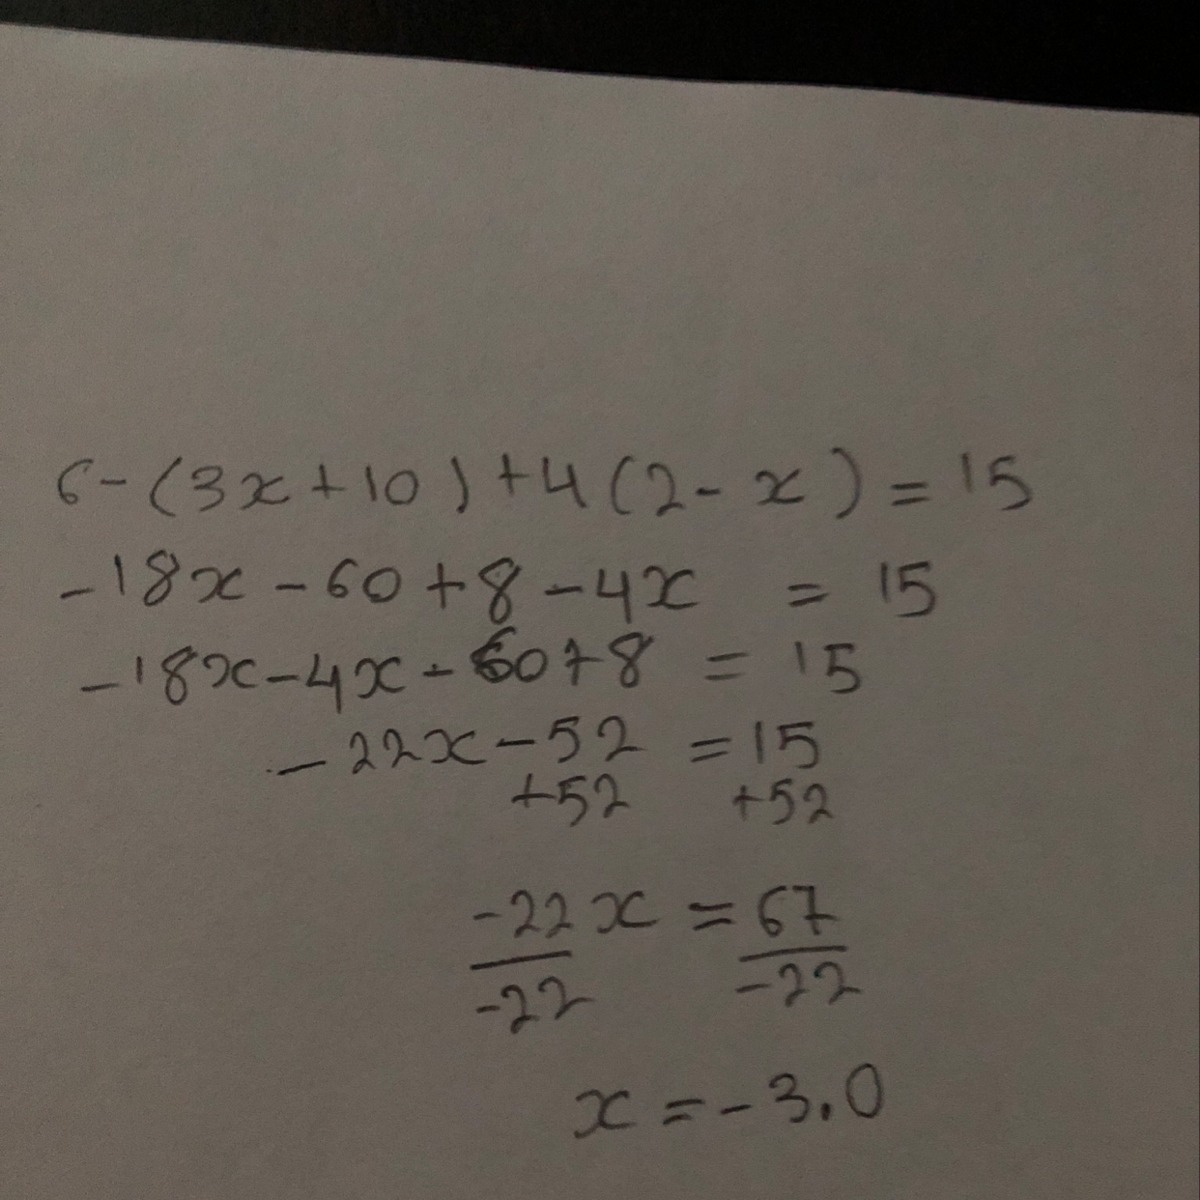 6-(3x+10)+4(2-x)=15
-18x-60+8-4x = 15
-18x-4x-60+8 = 15
-22x-52 =15
+52 +52
-22x = 67
-22 -22
x=-3.0